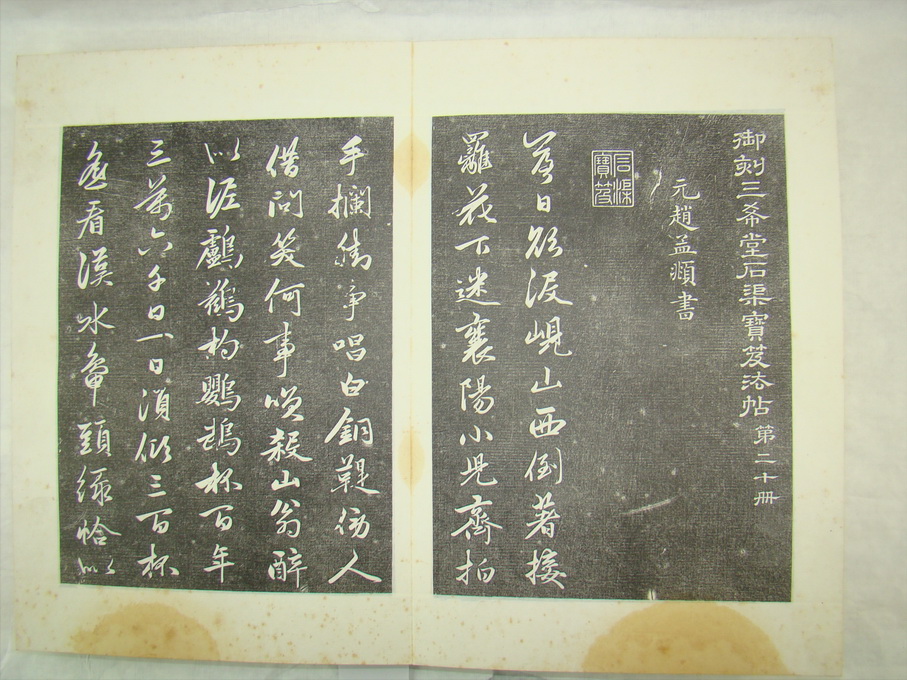 御刻三希堂石渠寶笈法帖第二十冊
元趙孟頫書
石渠寶笈
落日欲没峴山西倒著接
䍦花下迷襄陽小児齊拍
手攔街爭唱白銅鞮傍人
借問笑何事笑殺山翁醉
似泥鸕鷀杓鸚鵡杯百年
三萬六千日一日須傾三百杯
遥看漢水鴨頭緑恰似